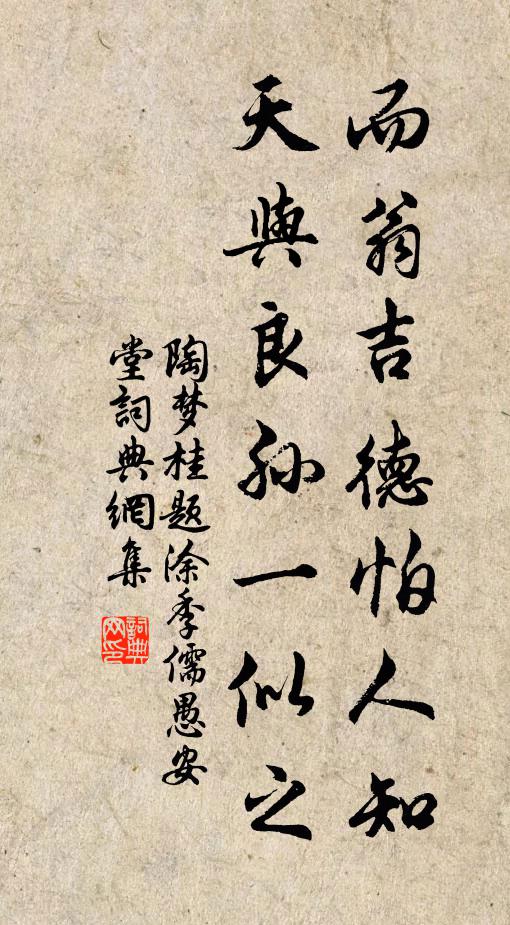 而翁吉德怕人知
天與良孙一似之
陶梦桂题涂季儒愚安
堂詞典網集
詞典
网印